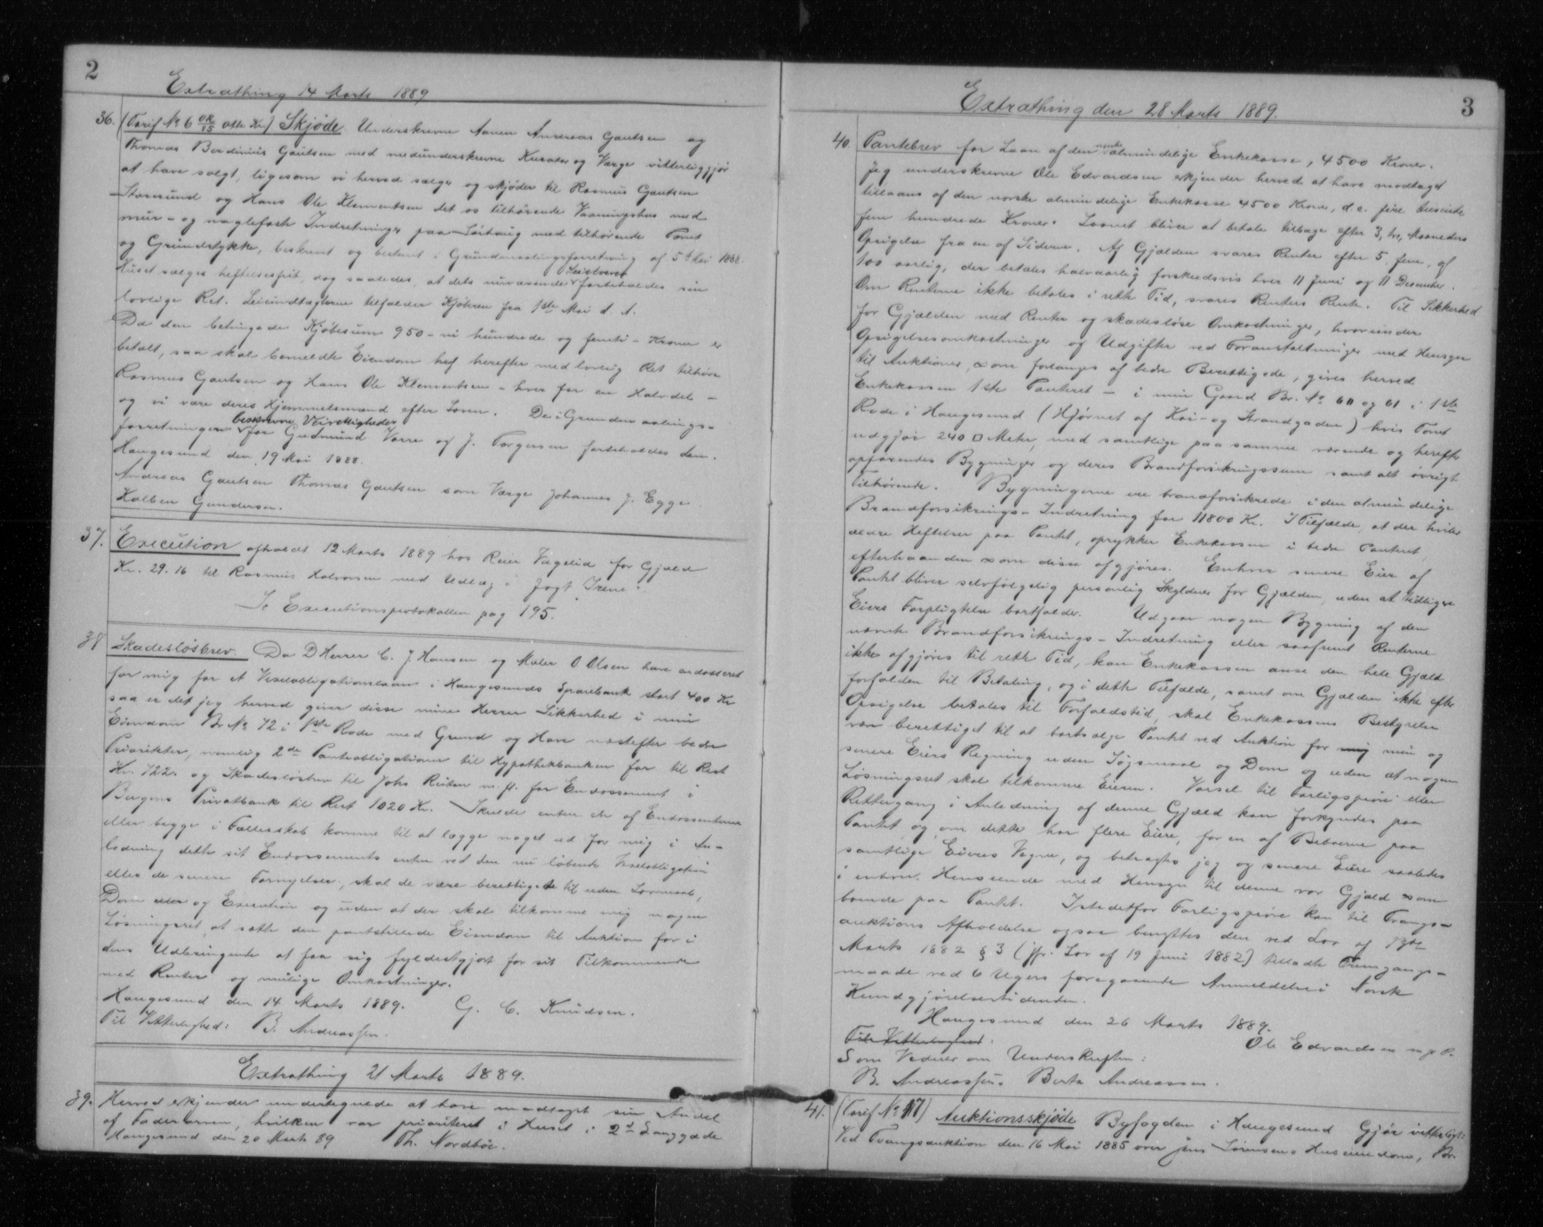 2
Extrathing 14 Marts 1889
36. (Tarif No 6 Skjøde. Underskrevne Aanen Andreas Gautsen og
Thomas Berdinius Gautsen med medunderskrevne Kurator og Værge vitterliggjør
at have solgt, ligesom vi herved sælger og skjøder til Rasmus Gautsen
Storesund og Hans Ole Klementsen det os tilhørende Vaaningshus med
mur- og naglefast Indretninger paa Sørhaug med tilhørende Tomt
og Grundstykke, beskrevet og i Grundmaalingsforretning af 5te Mai 1868.
Huset sælges heftelsesfrit, dog saaledes, at dets nuværende Leieboere forbeholdes sin
lovlige Ret. Leieindtægterne tilfalder Kjøberen fra 1ste Mai d. A.
Da den betingede Kjøbesum 950 - ni hundrede og femti - Kroner er
betalt, saa skal bemeldte Eiendom heref herefter med lovlig Ret tilhøre
Rasmus Gautsen og Hans Ole Klementsen - hver for en Halvdel -
og vi være deres Hjemmelsmænd efter Loven. De i Grundmaalings-
forretningen beskrevne Veirettigheder for Gudmund Vorre og J. Torgersen forbeholdes dem.
Haugesund den 19 Mai 1888.
Andreas Gautsen Thomas Gautsen som Værge Johannes J. Egge
Kolben Gundersen.
37. Execution afholdt 12 Marts 1889 hos Reier Vagelid for Gjæld
Kr. 29.16 til Rasmus Halvorsen med Udlæg i Jagt Irene.
Se Executionsprotokollen pag 195.
38 Skadesløsbrev. Da D'Herrer C. J Hansen og Maler O Olsen have endosseret
for mig for et Vexelobligationslaan i Haugesunds Sparebank stort 400 Kr
saa er det jeg herved giver disse mine Herrer Sikkerhed i min
Eiendom Br No 72 i 1ste Rode med Grund og Have næstefter bedre
Prioriteter, nemlig 2de Panteobligationer til Hypothekbanken for til Rest
Kr. 722 og Skadesløsbrev til Johs Reiten m. fl. for Endossement i
Bergens Privatbank til Rest 1020 Kr. Skulde enten een af Endossenterne
eller begge i Fællesskab komme til at lægge noget ud for mig i An-
ledning dette sit Endossements enten ved den nu løbende Vexelobligation
eller de senere Fornyelser, skal de være berettigede til uden Lovmaal,
Dom eller og Execution og uden at der skal tilkomme mig nogen
Løsningsret, at sætte den pantstillede Eiendom til Auktion for i
dens Udbringende at faa sig fyldestgjort for sit Tilkommende
med Renter og mulige Omkostninger.
Haugesund den 14 Marts 1889. G. C. Knudsen.
Til Vitterlighed: B. Andreassen.
Extrathing 21 Marts 1889.
39. Herved erkjender undertegnede at have modtaget sin Andel
af Fadererven, hvilken var prioriteret i Huset i 2d Langgade
Haugesund den 20 Marts 89 Th. Nordbøe.
3
Extrathing den 28 Marts 1889.
40. Pantebrev for Laan af den norske almindelige Enkekasse, 4500 Kroner.
Jeg underskrevne Ole Edvardsen erkjender herved at have modtaget
tillaans af den norske almindelige Enkekasse 4500 Kroner, d.e. fire tusinde
fem hundrede Kroner. Laanet bliver at betale tilbage efter 3, tre, Maaneders
Opsigelse fra en af Siderne. Af Gjælden svares Renter efter 5 fem, af
100 aarlig, der betales halvaarlig forskudsvis hver 11 Juni og 11 December.
Om Renterne ikke betales i rette Tid, svares Renters Rente. Til Sikkerhed
for Gjælden med Renter og skadesløse Omkostninger, hvorunder
Opsigelsesomkostninger og Udgifter ved Foranstaltninger med Hensyn
til Auktioner, som forlanges af bedre Berettigede, gives herved
Enkekassen 1ste Panteret - i min Gaard Br. No 60 og 61 i 1ste
Rode i Haugesund (Hjørnet af Kai- og Strandgaden) hvis Tomt
udgjør 240 □ Meter, med samtlige paa samme værende og herefter
opførendes Bygninger og deres Brandforsikringssum samt alt øvrigt
Tilhørende. Bygningerne ere brandforsikrede i den almindelige
Brandforsikrings-Indretning for 11800 Kr. I Tilfælde, at der hviler
ældre Heftelser paa Pantet, oprykker Enkekassen i bedre Panteret
efterhaanden som disse afgjøres. Enhver senere Eier af
Pantet bliver selvfølgelig personlig Skyldner for Gjælden, uden at tidligere
Eiers Forpligtelse bortfalder. Udgaar nogen Bygning af den
norske Brandforsikrings-Indretning eller saafremt Renterne
ikke afgjøres til rette Tid, kan Enkekassen anse den hele Gjæld
forfalden til Betaling, og i dette Tilfælde, samt om Gjælden ikke efter
Opsigelse betales til Forfaldstid, skal Enkekassens Bestyrelse
være berettiget til at bortsælge Pantet ved Auktion for min og
senere Eiers Regning uden Søgsmaal og Dom og uden at nogen
Løsningsret skal tilkomme Eieren. Varsel til Forligsprøve eller
Rettergang i Anledning af denne Gjæld kan forkyndes paa
Pantet og, om dette har flere Eiere, for en af Beboerne paa
samtlige Eieres Vegne, og betragtes jeg og senere Eiere saaledes
i enhver Henseende med Hensyn til denne vor Gjæld som
boende paa Pantet. Istedetfor Forligsprøve kan til Tvangs-
auktions Afholdelse ogsaa benyttes den ved Lov af 13de
Marts 1882 § 3 (jfr. Lov af 19 Juni 1882) tilladte Fremgangs-
maade ved 6 Ugers foregaaende Anmeldelse i Norsk
Kundgjørelsestidende.
Haugesund den 26 Marts 1889.
Ole Edvardsen m. p. P.
Til Vitterlighed:
Som Vidner om Underskriften:
B. Andreassen. Berta Andreassen.
41. (Tarif No 17) Auktionsskjøde Byfogden i Haugesund Gjør vitterligt:
Ved Tvangsauktion den 16 Mai 1885 over Jens Sørensens Huseiendom, Br.